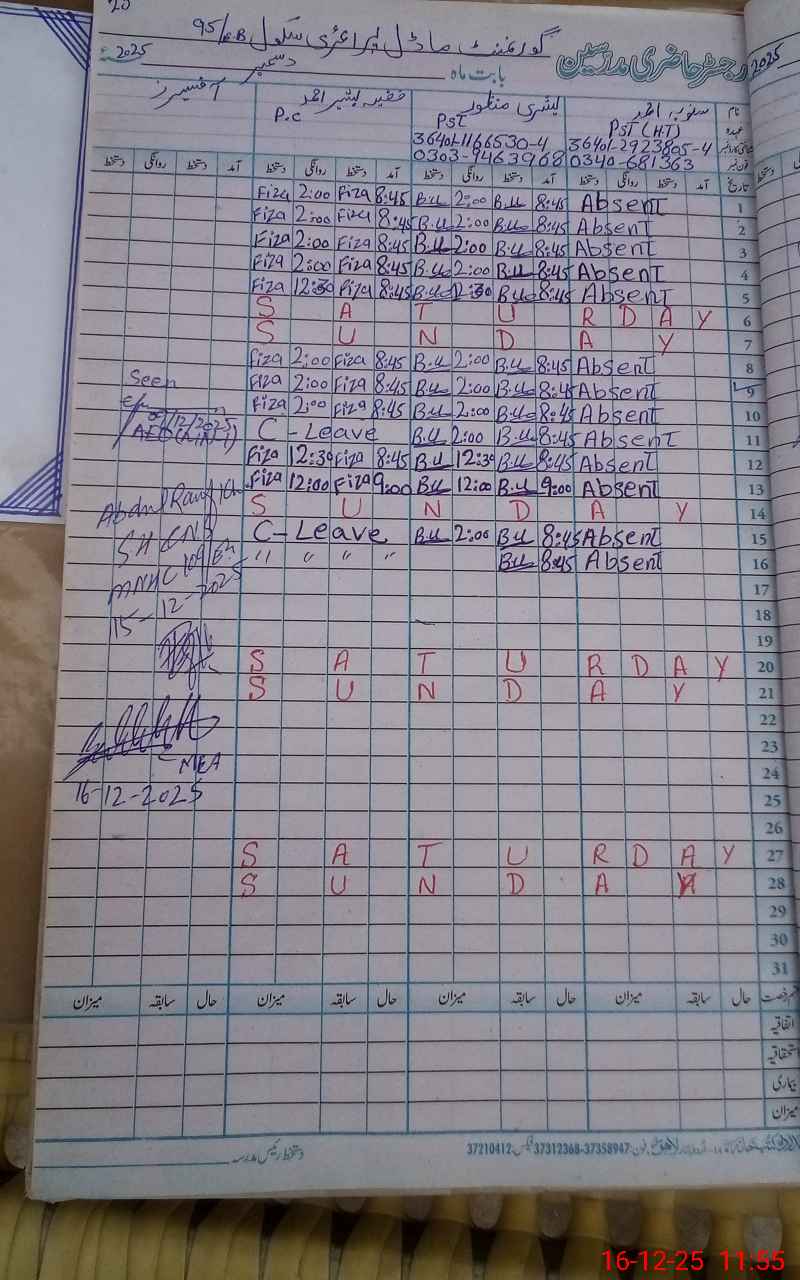 گورنمنٹ ماڈل پرائمری سکول 95/6.B
رجسٹر حاضری مدرسین
بابت ماہ دسمبر 2025
2025
نام
آفیسرز
P.C
بشریٰ منظور
PST
36401-1166530-4
0303-9463968
PST (H.T)
36401-2923805-4
0340-681363
تاریخ آمد دستخط روانگی دستخط آمد دستخط روانگی دستخط آمد دستخط روانگی دستخط آمد دستخط روانگی دستخط
Fiza 2:00 Fiza 8:45 B.u 2:00 B.u 8:45 Absent 1
Fiza 2:00 Fiza 8:45 B.u 2:00 B.u 8:45 Absent 2
Fiza 2:00 Fiza 8:45 B.u 2:00 B.u 8:45 Absent 3
Fiza 2:00 Fiza 8:45 B.u 2:00 B.u 8:45 Absent 4
Fiza 12:30 Fiza 8:45 B.u 12:30 B.u 8:45 Absent 5
S A T U R D A Y 6
S U N D A Y 7
Fiza 2:00 Fiza 8:45 B.u 2:00 B.u 8:45 Absent 8
Fiza 2:00 Fiza 8:45 B.u 2:00 B.u 8:45 Absent 9
Fiza 2:00 Fiza 8:45 B.u 2:00 B.u 8:45 Absent 10
C-Leave B.u 2:00 B.u 8:45 Absent 11
Fiza 12:30 Fiza 8:45 B.u 12:30 B.u 8:45 Absent 12
Fiza 12:00 Fiza 9:00 B.u 12:00 B.u 9:00 Absent 13
S U N D A Y 14
C-Leave B.u 2:00 B.u 8:45 Absent 15
" " " " B.u 8:45 Absent 16
17
18
19
S A T U R D A Y 20
S U N D A Y 21
22
23
24
25
26
S A T U R D A Y 27
S U N D A Y 28
29
30
31
Seen
/12/2025
AEO
Abdul Rauf
15-12-2025
MEA
16-12-2025
حال سابقہ میزان حال سابقہ میزان حال سابقہ میزان حال سابقہ میزان
اتفاقیہ
استحقاقیہ
بیماری
میزان
دستخط رئیس مدرسہ
فون: 37358947-37312368 فیکس: 37210412
16-12-25 11:55